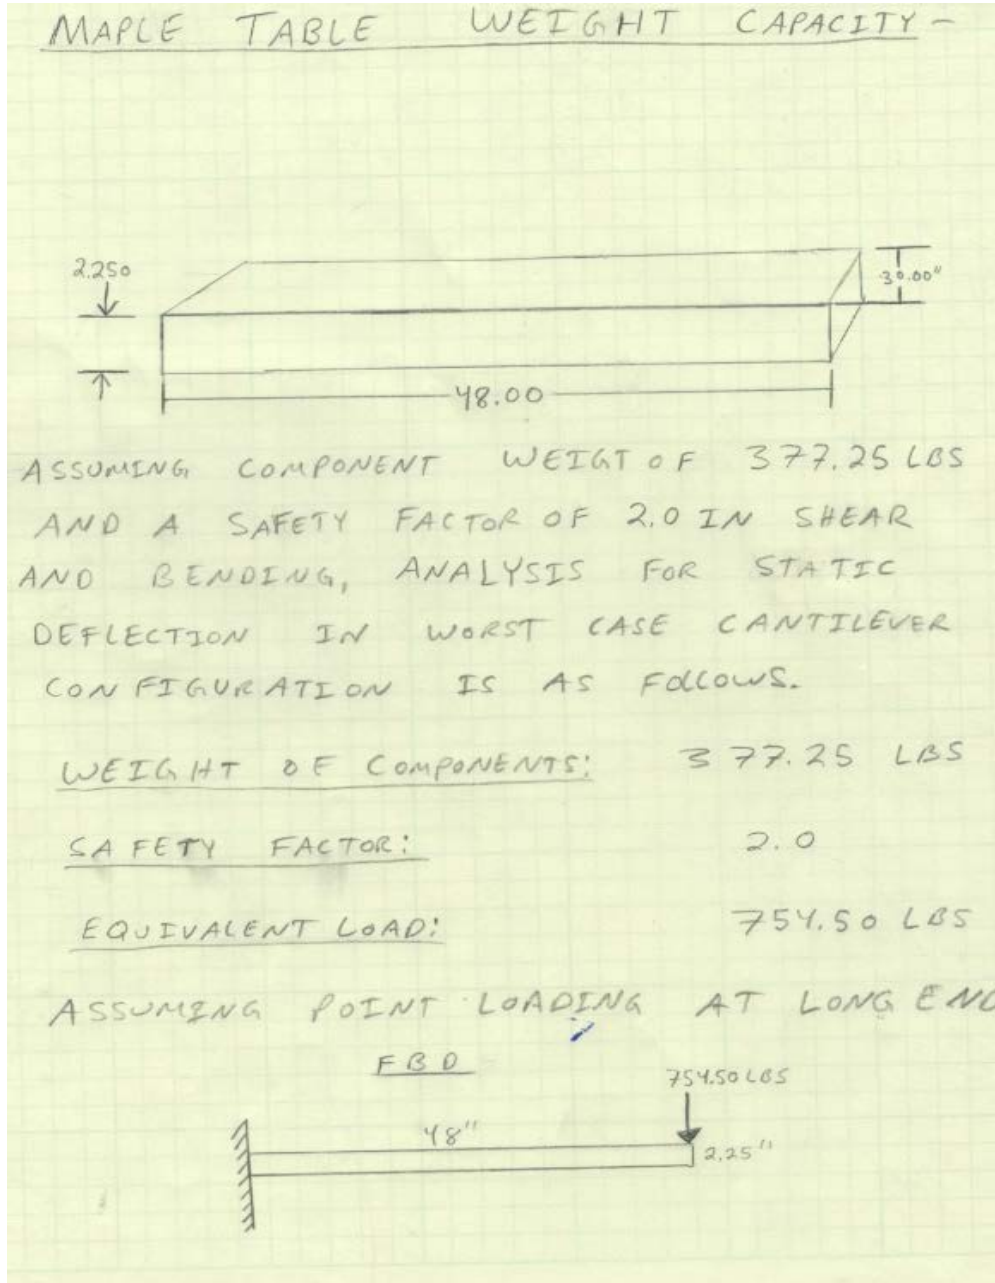 MAPLE TABLE WEIGHT CAPACITY -
2.250
30.00"
48.00
ASSUMING COMPONENT WEIGT OF 377.25 LBS
AND A SAFETY FACTOR OF 2.0 IN SHEAR
AND BENDING, ANALYSIS FOR STATIC
DEFLECTION IN WORST CASE CANTILEVER
CONFIGURATION IS AS FOLLOWS.
WEIGHT OF COMPONENTS: 377.25 LBS
SAFETY FACTOR: 2.0
EQUIVALENT LOAD: 754.50 LBS
ASSUMING POINT LOADING AT LONG END
FBD
754.50 LBS
48"
2.25"